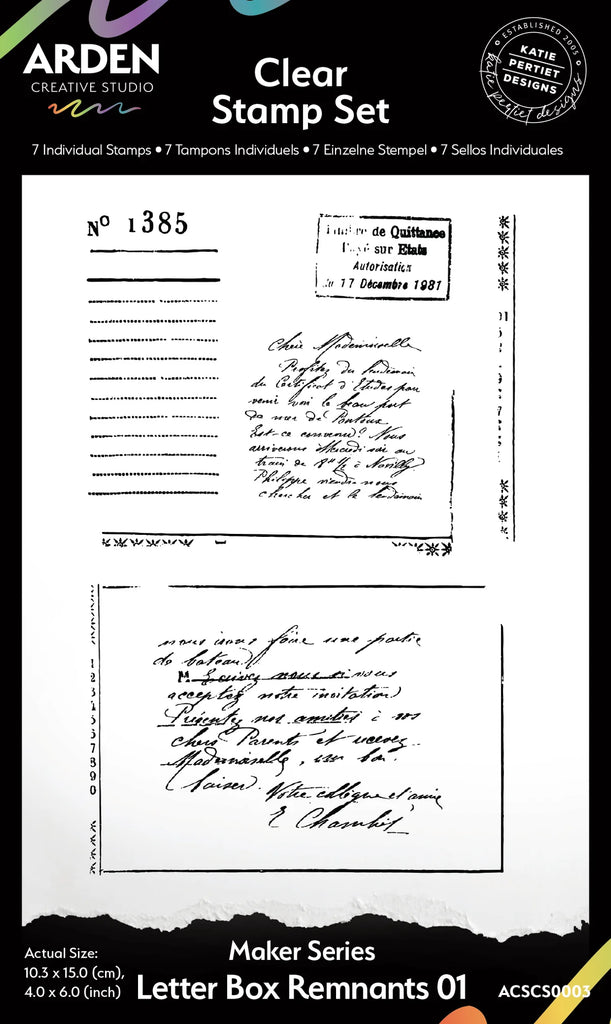 ARDEN
CREATIVE STUDIO
Clear
Stamp Set
ESTABLISHED 2005
KATIE
PERTIET
DESIGNS
katie pertiet designs
7 Individual Stamps • 7 Tampons Individuels • 7 Einzelne Stempel • 7 Sellos Individuales
Nº 1385
de Quittance
sur Etats
Autorisation
du 17 Décembre 1981
Chère Mademoiselle
Profitez du lendemain
du Certificat d'Etudes pour
venir voir le beau port
de mer de
Est-ce convenu? Nous
arriverons Mercredi soir au
train de 8h ½ à
Philippe viendra nous
chercher et le lendemain
nous irons faire une partie
de bateau
M. Ecrivez nous si vous
acceptez notre invitation
Présentez nos amitiés à vos
chers Parents et recevez
Mademoiselle, un bon
baiser.
Votre collègue et amie
E
1234567890
Actual Size:
10.3 x 15.0 (cm),
4.0 x 6.0 (inch)
Maker Series
Letter Box Remnants 01
ACSCS0003